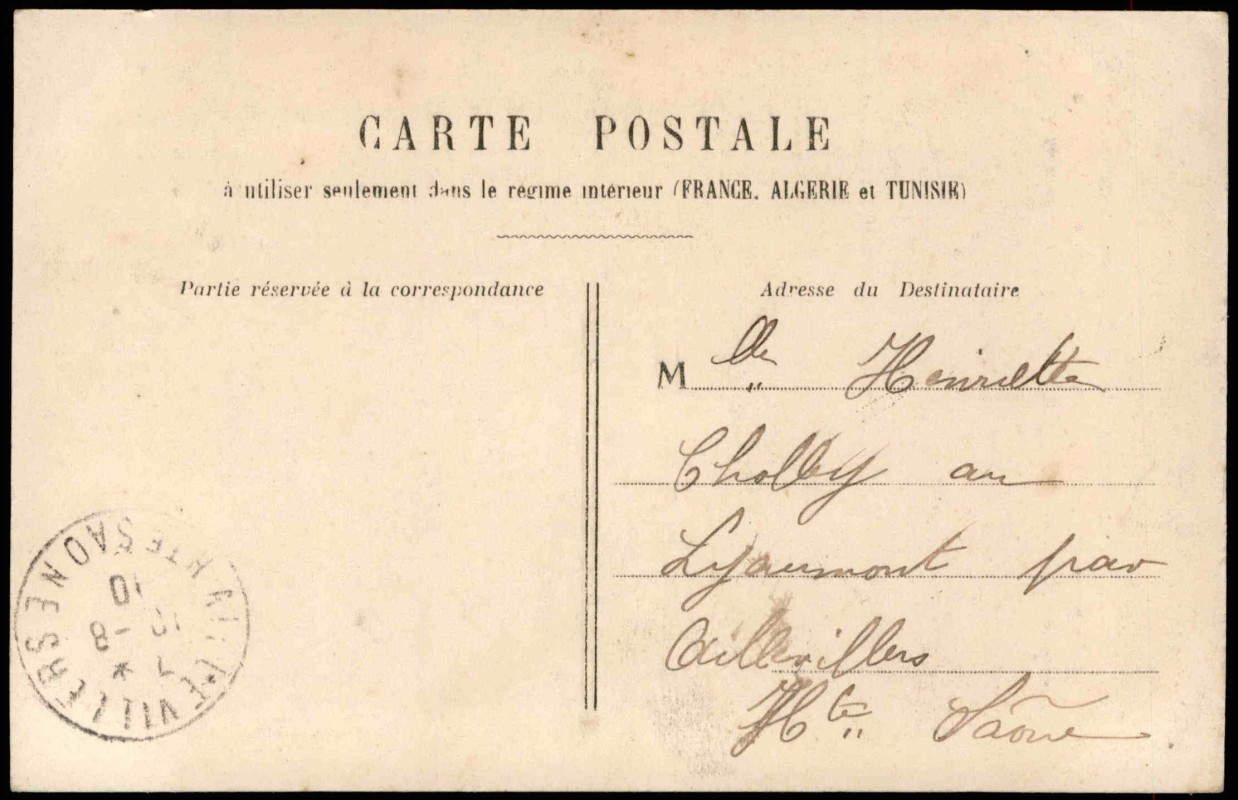 CARTE POSTALE
à utiliser seulement dans le régime intérieur (FRANCE, ALGERIE et TUNISIE)
Partie réservée à la correspondance
Adresse du Destinataire
M lle Henriette
Cholley au
Lyaumont par
Aillevillers
Hte Saône
AILLEVILLERS HTE SAONE
10